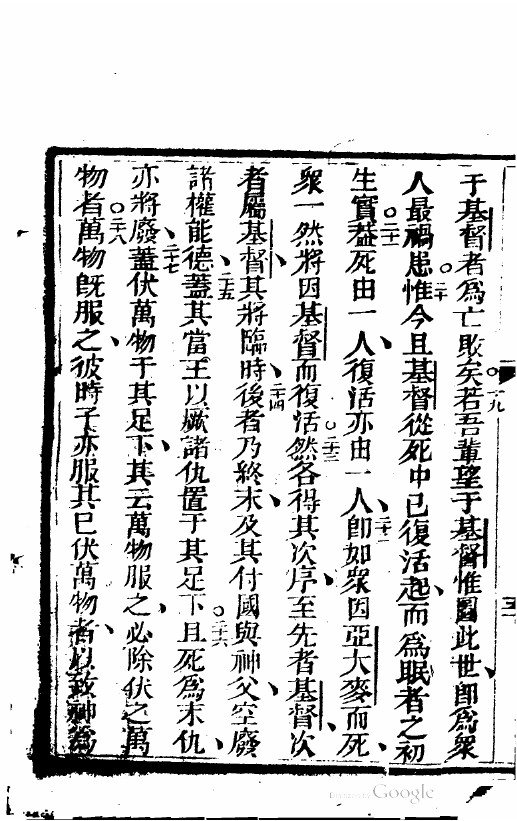 于基督者為亡敗矣○十九若吾輩望于基督惟圖此世即為眾
人最禍患○二十惟今且基督從死中已復活起而為眠者之初
生實益○二十一死由一人復活亦由一人二十二即如眾因亞大麥而死
眾一然將因基督而復活○二十三然各得其次序至先者基督次
者屬基督其將臨時二十四後者乃終末及其付國與神父空廢
諸權能德二十五蓋其當王以厥諸仇置于其足下○二十六且死為末仇
亦將廢二十七蓋伏萬物于其足下其云萬物服之必除伏之萬
物者○二十八萬物既服之彼時子亦服其已伏萬物者以致神為
Google